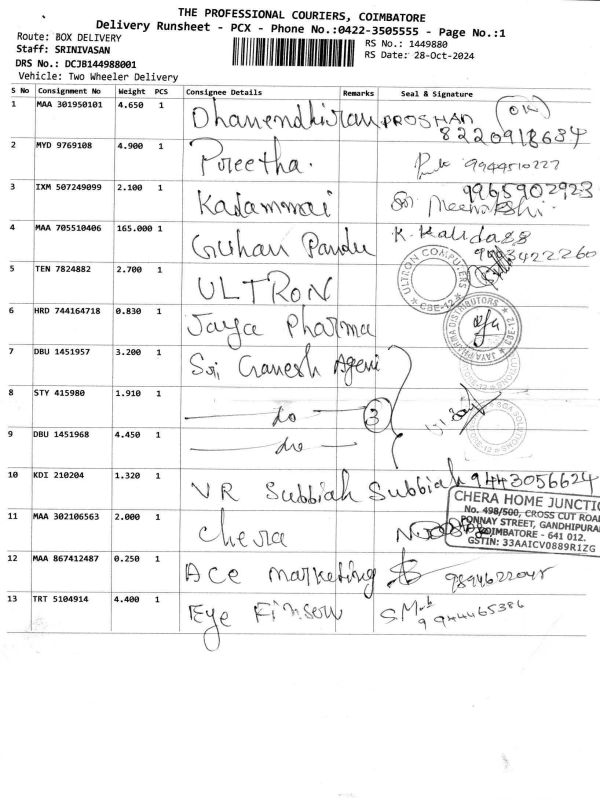 THE PROFESSIONAL COURIERS, COIMBATORE
Delivery Runsheet - PCX - Phone No.:0422-3505555 - Page No.:1
Route: BOX DELIVERY
RS No.: 1449880
Staff: SRINIVASAN
RS Date: 28-Oct-2024
DRS No.: DCJB144988001
Vehicle: Two Wheeler Delivery
S No Consignment No Weight PCS Consignee Details Remarks Seal & Signature
1 MAA 301950101 4.650 1 Dhanendhiran PROSHAN OK
8220918634
2 MYD 9769108 4.900 1 Preetha. 9944510227
3 IXM 507249099 2.100 1 Kadammai 9965902923
Meenakshi.
4 MAA 705510406 165.000 1 Guhan Pandu K. Kalidass
9003422260
5 TEN 7824882 2.700 1 ULTRON
ULTRON COMPUTERS
CBE-12
6 HRD 744164718 0.830 1 Jaya Pharma
JAYA PHARMA DISTRIBUTORS
7 DBU 1451957 3.200 1 Sri Ganesh Agenci
8 STY 415980 1.910 1 do 3
9 DBU 1451968 4.450 1 do
10 KDI 210204 1.320 1 VR Subbiah Subbiah 9443056624
11 MAA 302106563 2.000 1 Chera
CHERA HOME JUNCTIO
No. 498/500, CROSS CUT ROAD
PONNAY STREET, GANDHIPURA
COIMBATORE - 641 012.
GSTIN: 33AAICV0889R1ZG
12 MAA 867412487 0.250 1 Ace marketing 9894622048
13 TRT 5104914 4.400 1 Eye Finsew
9944465386